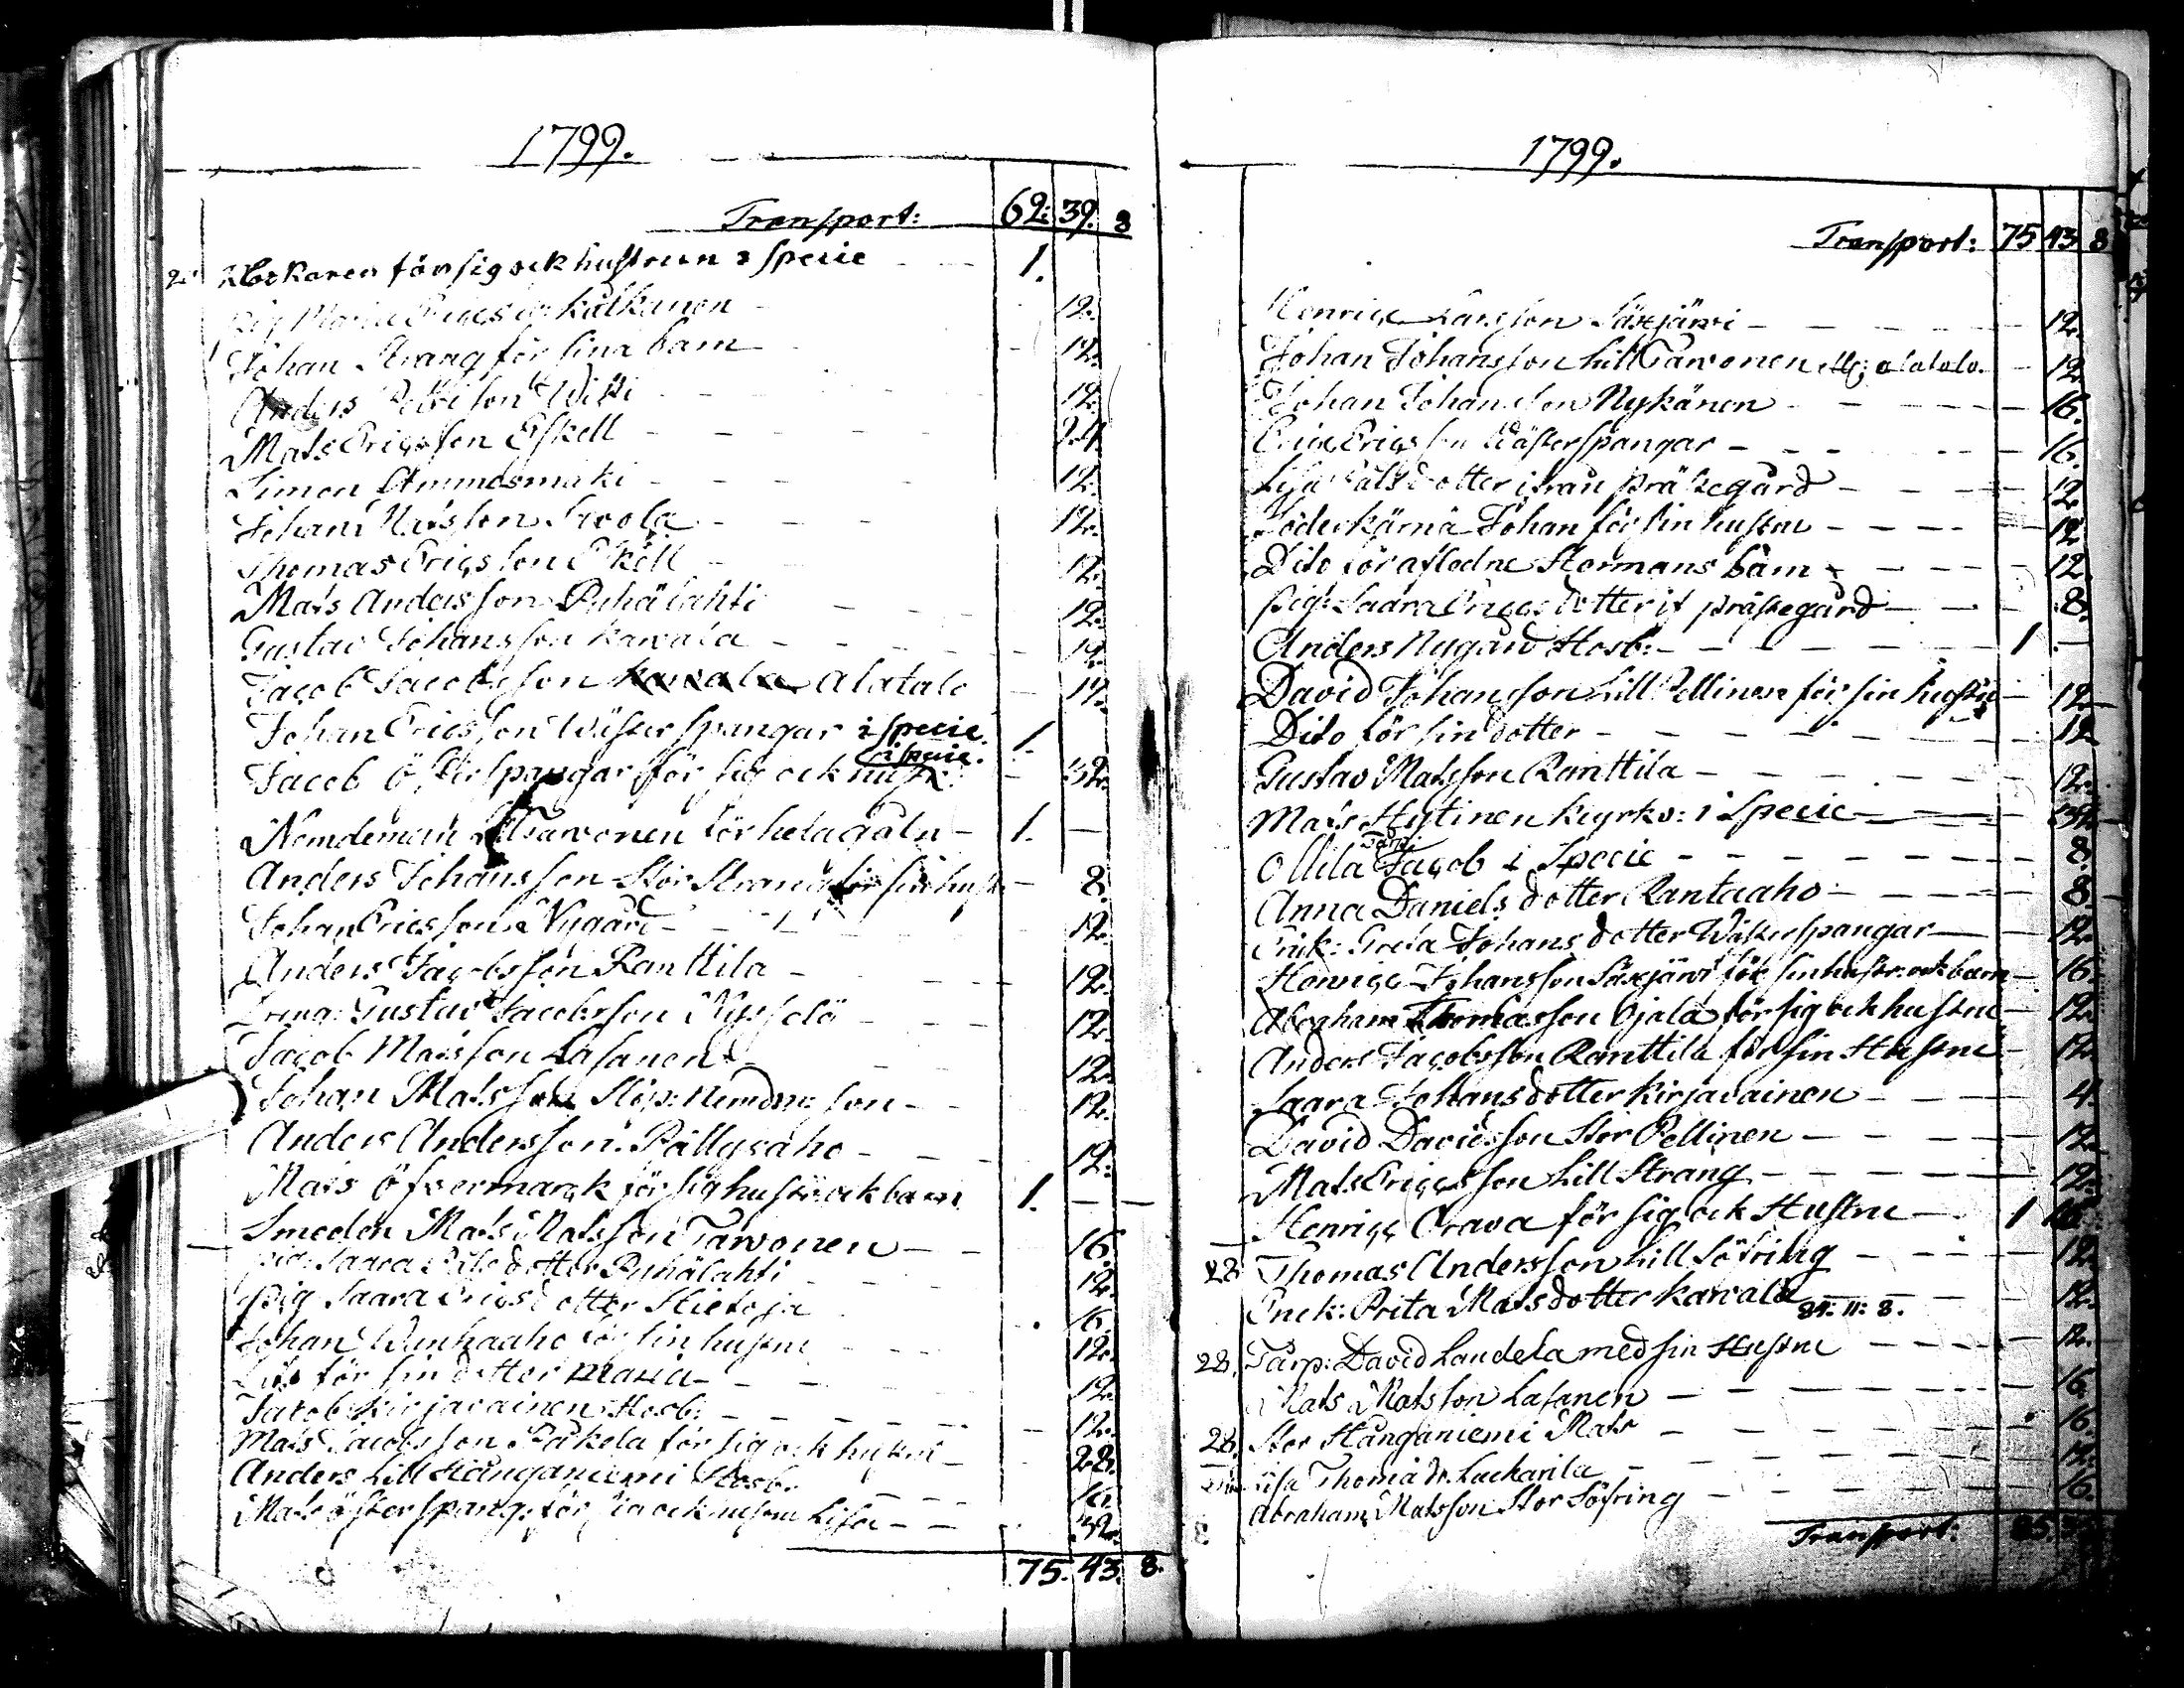 1799.
Transport: 62: 39. 8
Klockaren för sig ock hustrun i specie 1.
Pig Maria Kålkanen 12.
Johan Strang för sina barn 12.
Anders Wiki 12.
Mats Ericsson Eskell 24.
Simon Ammesmäki 12.
Johan Matsson Savola 12.
Thomas Ericsson Eskell 12.
Mats Andersson Pyhälahti 12.
Gustav Johansson Karvala 12.
Jacob Jacobsson Karvala Alatalo 12.
Johan Ericsson Wästerspangar i specie. 1.
Jacob Österspangar för sig ock hustr: i specie. 32.
Nemdeman Tarvonen för hela gåln 1.
Anders Johansson Stor Strang för sin hust 8.
Johan Ericsson Nygård 12.
Anders Jacobsson Ranttila 12.
Dreng: Gustav Jacobsson 12.
Jacob Matsson Lasanen 12.
Johan Matsson Slip: Nemdm: son 12.
Anders Andersson Pällysaho 12.
Mats Öfvermarck för sig hustr: ock barn 1.
Smeden Mats Matsson Tarvonen 16.
Pig: Saara dotter Pyhälahti 12.
Pig Saara Ericsdotter Hietoja 6.
Johan Wanhaaho för sin hustru 12.
Dito för sin dotter Maria 12.
Jakob Kirjavainen Hosb: 12.
Mats Jacobsson Päkela för sig ock hustru 28.
Anders Lill Hånganiemi Hosb. 16.
Mats Österspang: för sig ock hustru Lisa 32.
75. 43. 8.
1799.
Transport: 75 43 8
Henric Larsson Säxjärvi 12.
Johan Johansson Lill Tarvonen ell: alatalo. 12
Johan Johansson Nykänen 16.
Eric Ericsson Wästerspangar 16.
Lisa Matsdotter ifrån prästegård 12
Söderkärnä Johan för sin hustru 12
Dito för afledne Hermans barn 12.
Pig: Saara Ericsdotter if prästegård 8.
Anders Nygård Hosb: 1
David Johansson Lill Pellinen för sin hustru 12
Dito för sin dotter 12
Gustav Matsson Ranttila 12.
Mats Hytinen Kyrkv: i Specie
Ollila Jacob i Specie 8.
Anna Danielsdotter Rantaaho 8.
Enk: Greta Johansdotter Wästerspangar 12.
Henric Johansson Säxjärvi för sin hustr: ock barn 16.
Abraham Thomasson Ojala för sig ock hustru 12.
Anders Jacobsson Ranttila för sin Hustru 12.
Saara Johansdotter Kirjavainen 4.
David Davidsson Stor Pellinen 12.
Mats Ericsson Lill Strang 12.
Henric Orava för sig ock Hustru 1 16.
28 Thomas Andersson Lill Söfring 12.
Enck: Brita Matsdotter Karvala 84: 11: 8. 12.
28. Tårp: David Landela med sin Hustru 12.
Mats Matsson Lasanen 16.
28. Stor Hånganiemi Mats 16.
Lisa Thoma dr. Luckarila 12.
Abraham Matsson Stor Söfring 6.
Transport: 85.